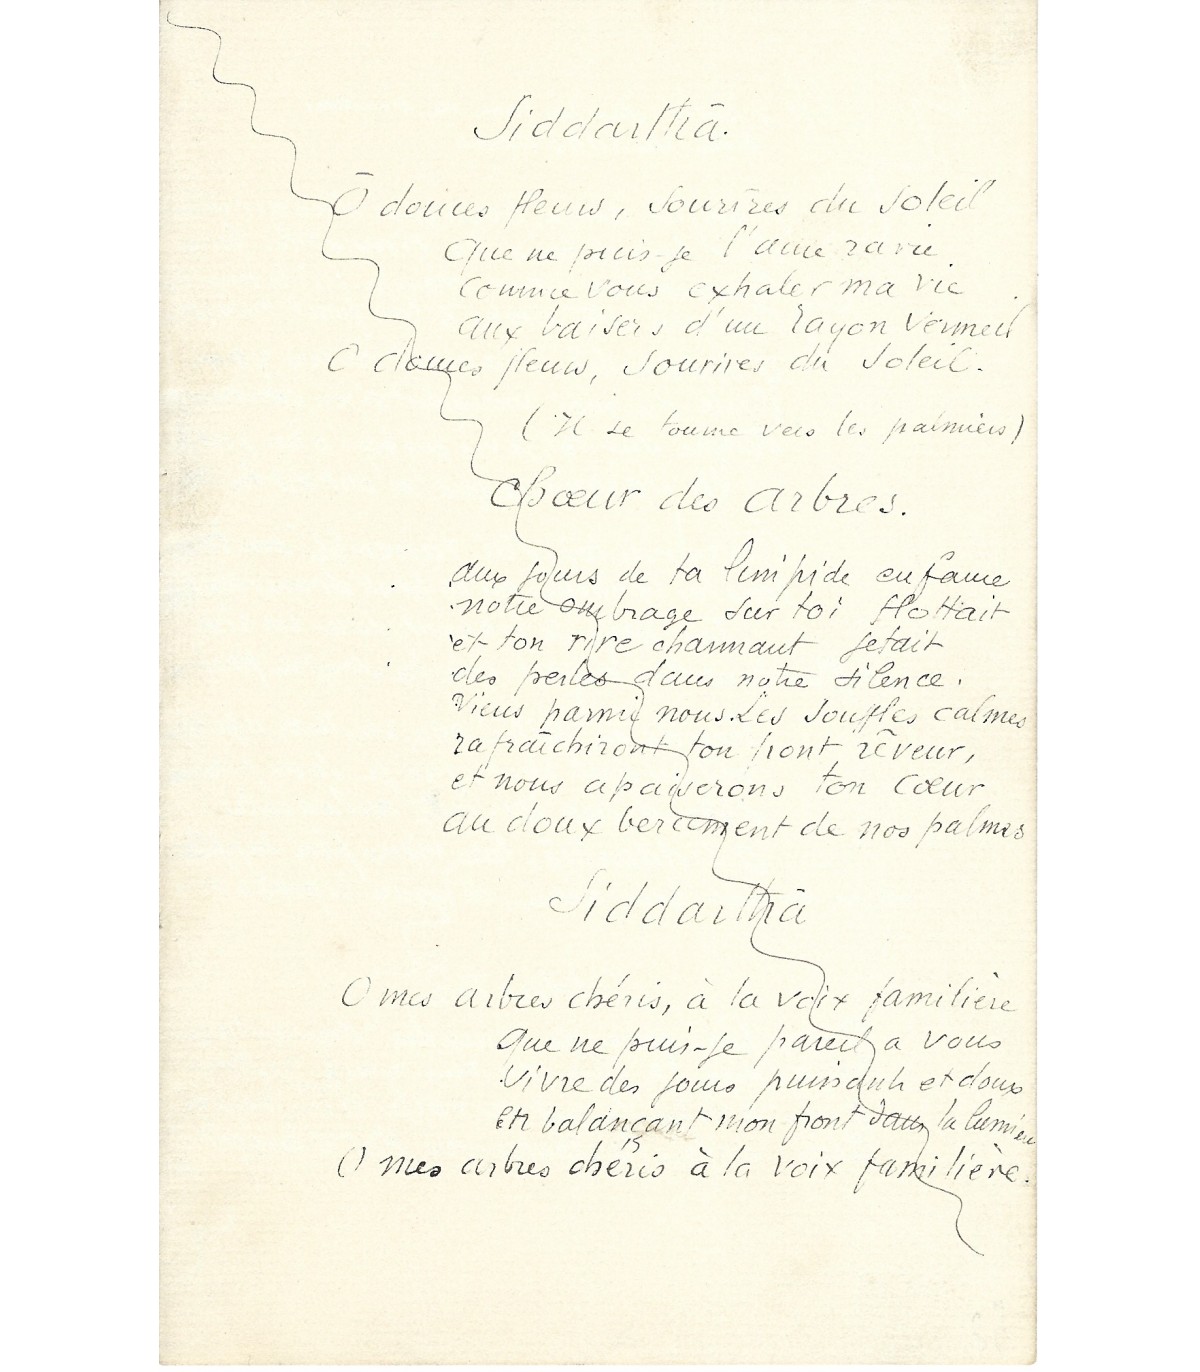 Siddarthā.
Ô douces fleurs, sourires du soleil
Que ne puis-je l'âme ravie
Comme vous exhaler ma vie
aux baisers d'un rayon vermeil
O douces fleurs, sourires du soleil.
(Il se tourne vers les palmiers)
Chœur des arbres.
Aux jours de ta limpide enfance
notre ombrage sur toi flottait
et ton rire charmant jetait
des perles dans notre silence.
Viens parmi nous. Les souffles calmes
rafraîchiront ton front rêveur,
et nous apaiserons ton cœur
au doux bercement de nos palmes
Siddarthā
O mes arbres chéris, à la voix familière
Que ne puis-je pareil a vous
Vivre des jours puissants et doux
En balançant mon front dans la lumière
O mes arbres chéris à la voix familière.